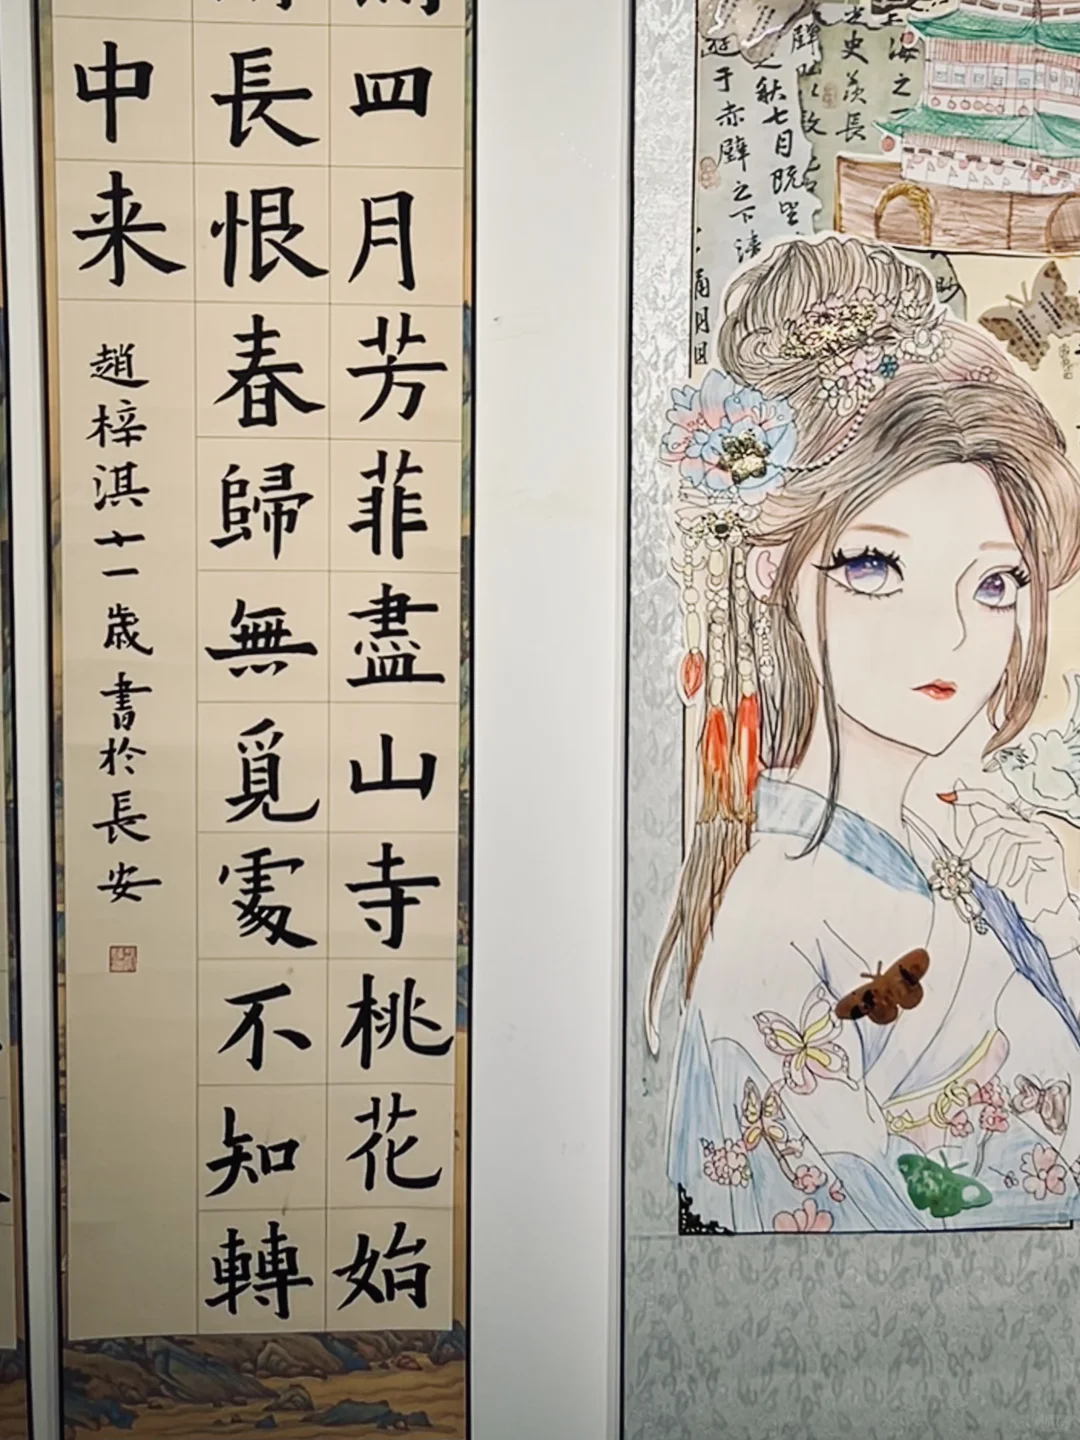 四月芳菲盡山寺桃花始
長恨春歸無覓處不知轉
中来
趙梓淇十一歳書於長安
海之一
史羨長
秋七月既望
于赤壁之下